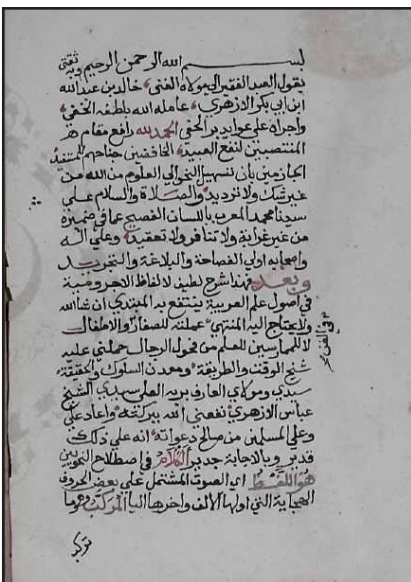 بسم الله الرحمن الرحيم وبه ثقتي
يقول العبد الفقير الى مولاه الغني خالد بن عبد الله
ابن ابي بكر الازهري عامله الله بلطفه الخفي
واجراه على عوايد بره الحفي الحمد لله رافع مقام
المنتصبين لنفع العبيد الخافضين جناحهم للمستفيد
الجازمين بان تسهيل النحو الى العلوم من الله من
غير شك ولا ترديد والصلاة والسلام على
سيدنا محمد المعرب باللسان الفصيح عما في ضميره
من غير غرابة ولا تنافر ولا تعقيد وعلى اله
واصحابه اولي الفصاحة والبلاغة والتجريد
وبعد فهذا شرح لطيف لالفاظ الاجرومية
في اصول علم العربية ينتفع به المبتدي ان شا الله
ولا يحتاج اليه المنتهي عملته للصغار والاطفال
لا للممارسين للعلم من فحول الرجال حملني عليه
شيخ الوقت والطريقة ومعدن السلوك والحقيقة
سيدي ومولاي العارف بربه العلي سيدي الشيخ
عباس الازهري نفعني الله ببركته واعاد علي
وعلى المسلمين من صالح دعواته انه على ذلك
قدير وبالاجابة جدير الكلام في اصطلاح النحويين
هو اللفظ اي الصوت المشتمل على بعض الحروف
الهجاية التي اولها الالف واخرها اليا المركب وهو ما
تركب